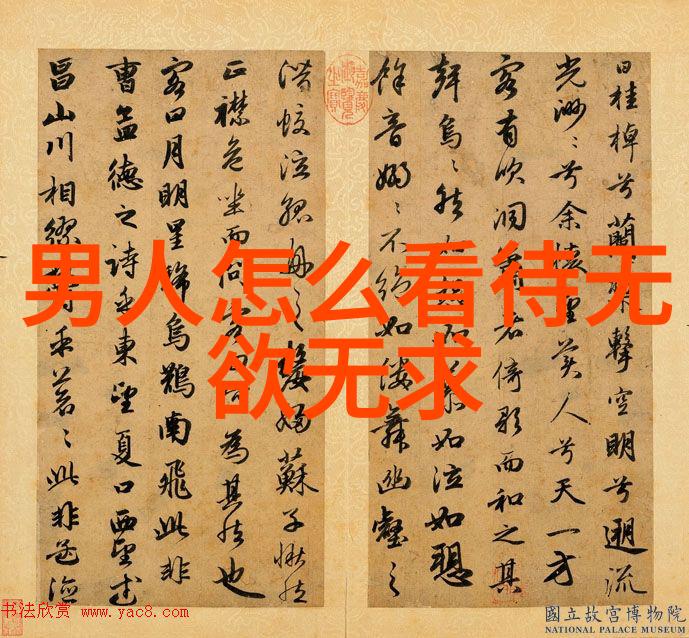 男人怎么看待无
欲无求
曰桂棹兮蘭槳擊空明兮遡流
光渺〻兮余懷望美人兮天一方
客有吹洞簫者倚歌而和之其
聲烏〻然如怨如慕如泣如訴
餘音嫋〻不絕如縷舞幽壑之
潛蛟泣孤舟之嫠婦蘇子愀然
正襟危坐而問客曰何為其然也
客曰月明星稀烏鵲南飛此非
曹孟德之詩乎東望夏口西望武
昌山川相繆鬱乎蒼〻此非孟德
嘉慶御覽之寶
书法欣赏 www.yac8.com
國立故宮博物院
NATIONAL PALACE MUSEUM